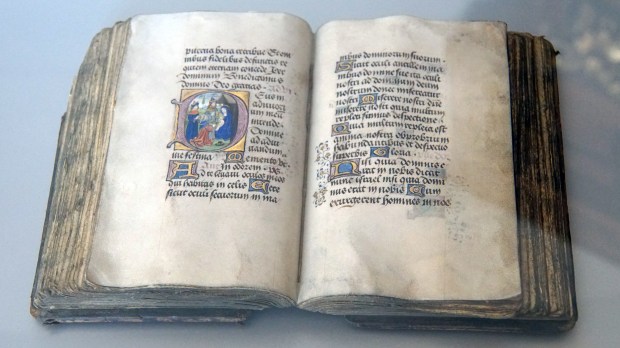 Et om
nibus fidelibus defunctis re
quiem eternam concede
dominum Benedicamus
domino Deo gracias
Deus in
adiutori
um meu
intende
Domine
ad adiu
uandum
me festina Memento
in odorem
Ad te leuaui oculos meos
Qui habitas in celis Ecce
sicut oculi seruorum in ma
nibus dominorum suorum
Sicut oculi ancille in ma
nibus domine sue ita oculi
nostri ad dominum deum
nostrum donec misereatur
nostri Miserere nostri dne
miserere nostri quia multum
repleti sumus despectione
Quia multum repleta est
anima nostra obprobrium
et despectio
superbis Gloria
Nisi quia dominus e
rat in nobis dicat
nunc israel nisi quia domi
nus erat in nobis Cum
exurgerent homines in nos